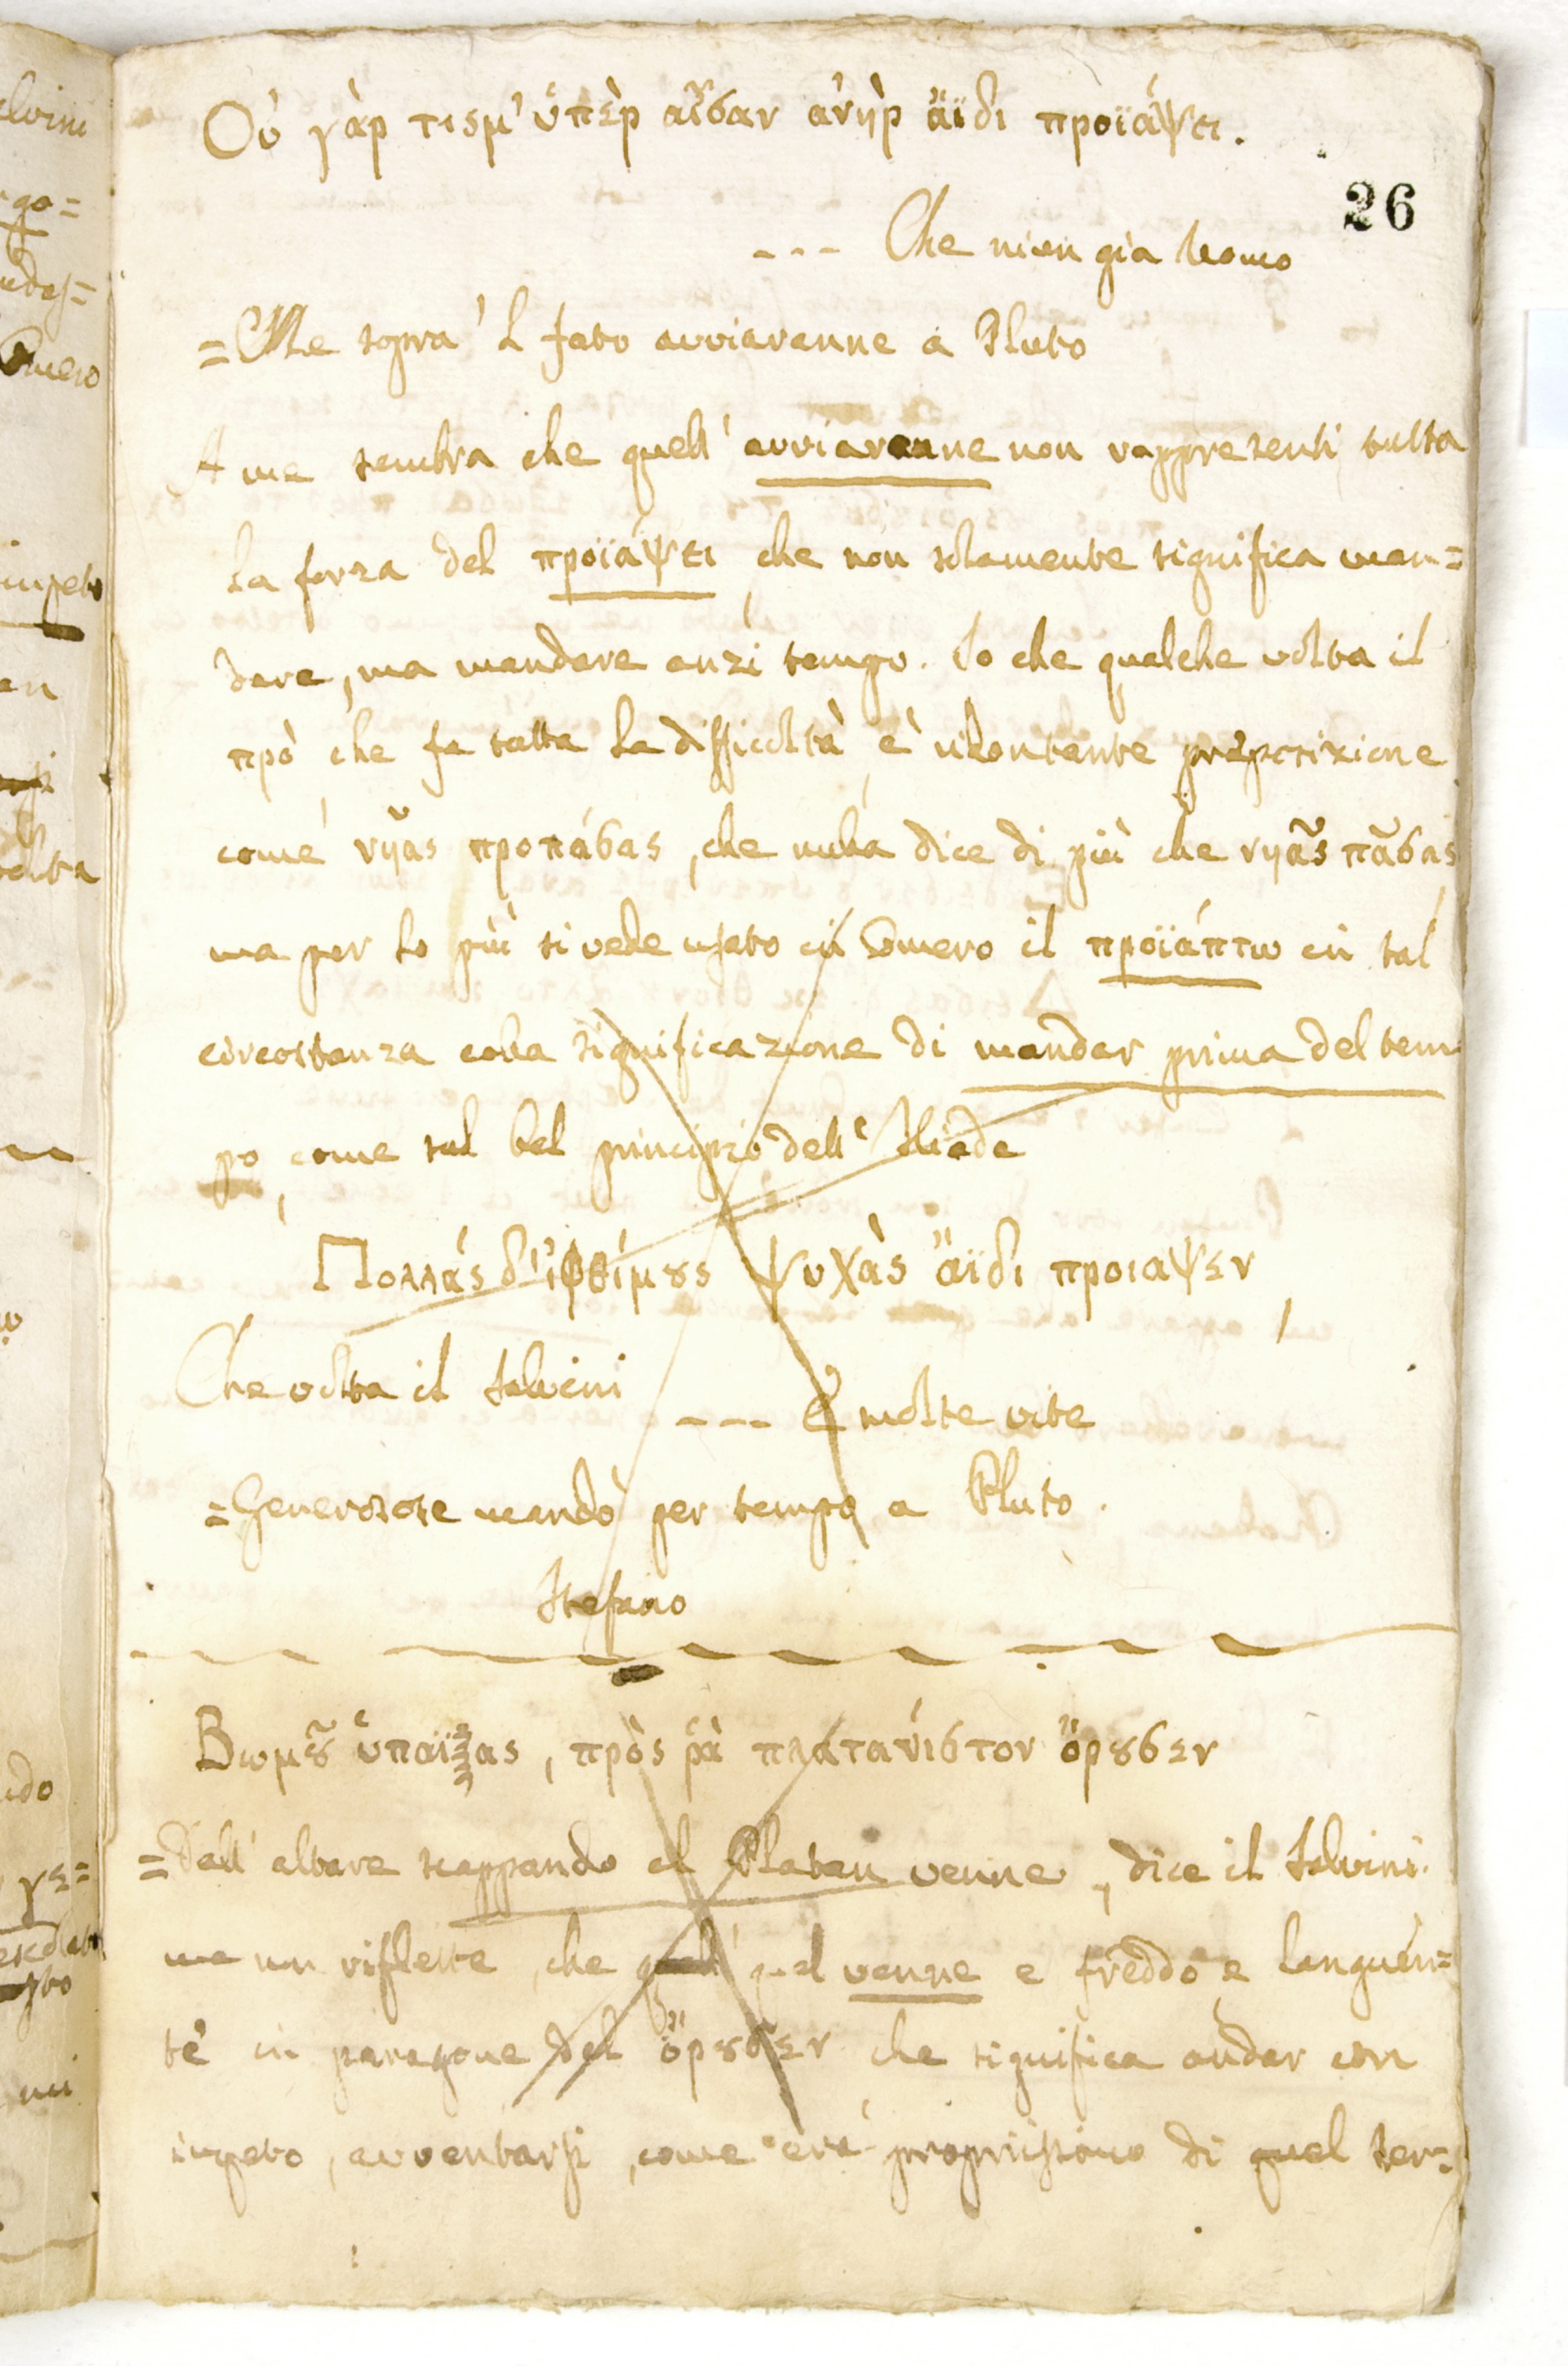 Οὐ γὰρ τισμ' ὑπὲρ αἶσαν ἀνὴρ ἄϊδι προϊάψει.
26
--- Che niun già Uomo
=Me sopra 'l fato avviaranne a Pluto
A me sembra che quell' avviaranne non rappresenti tutta
la forza del προϊάψει che non solamente significa man=
dare, ma mandare anzi tempo. So che qualche volta il
πρὸ che fa tutta la difficoltà è ridontante preposizione
come νῆας προπάσας, che nulla dice di più che νηᾶς πᾶσας
ma per lo più si vede usato in Omero il προϊάπτω in tal
circostanza colla significazione di mandar prima del tem
po, come sul bel principio dell' Iliade
Πολλάς δ' ἰφθίμους ψυχὰς ἄϊδι προιαψεν
Che volta il Salvini
--- E molte vite
=Generosose mandò per tempo a Pluto.
Stefano
Βωμοῦ ὑπαΐξας, πρὸς ῥὰ πλάτανίστον ὄρουσεν
=Dall' altare scappando al Platan venne, dice il Salvini.
ma non riflette, che quel venne e freddo e languen=
te in paragone del ὄρουσεν che significa andar con
impeto, avventarsi, come era propriissimo di quel ser=